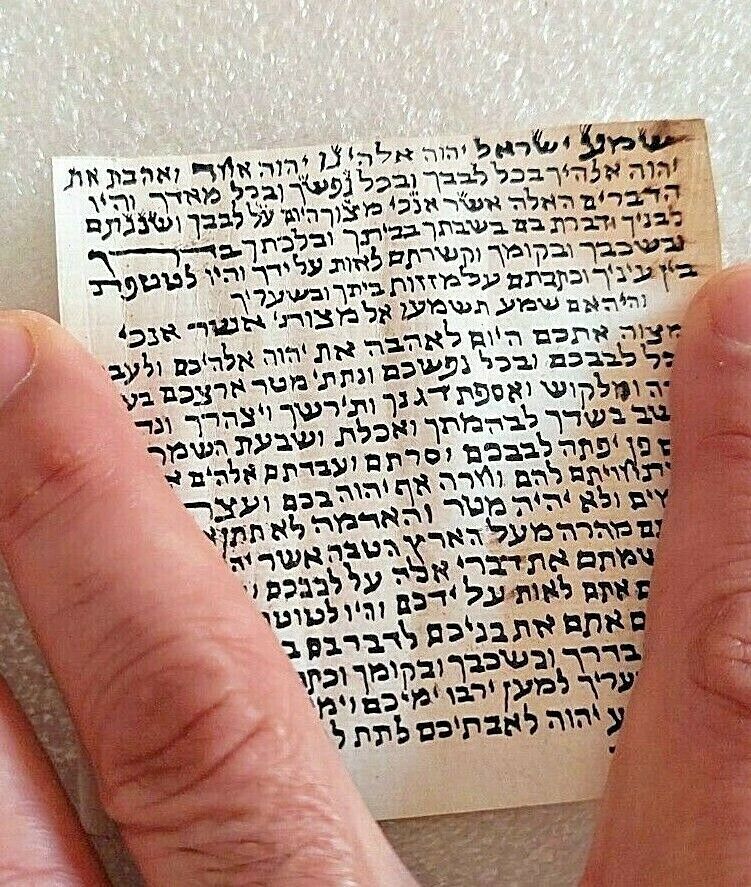 שמע ישראל יהוה אלהינו יהוה אחד ואהבת את
יהוה אלהיך בכל לבבך ובכל נפשך ובכל מאדך והיו
הדברים האלה אשר אנכי מצוך היום על לבבך ושננתם
לבניך ודברת בם בשבתך בביתך ובלכתך בדרך
ובשכבך ובקומך וקשרתם לאות על ידך והיו לטטפת
בין עיניך וכתבתם על מזזות ביתך ובשעריך
והיה אם שמע תשמעו אל מצותי אשר אנכי
מצוה אתכם היום לאהבה את יהוה אלהיכם ולעב
כל לבבכם ובכל נפשכם ונתתי מטר ארצכם בע
רה ומלקוש ואספת דגנך ותירשך ויצהרך ונת
שב בשדך לבהמתך ואכלת ושבעת השמר
ם פן יפתה לבבכם וסרתם ועבדתם אלהים א
תחויתם להם וחרה אף יהוה בכם ועצר
מים ולא יהיה מטר והאדמה לא תתן א
ם מהרה מעל הארץ הטבה אשר יה
שמתם את דברי אלה על לבבכם ו
ם אתם לאות על ידכם והיו לטוטפ
ם אתם את בניכם לדבר בם ב
בדרך ובשכבך ובקומך וכת
עריך למען ירבו ימיכם וימי
ע יהוה לאבתיכם לתת ל